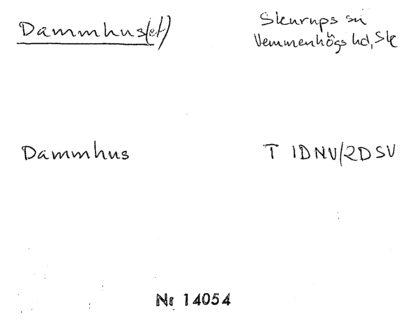 Dammhus(et)
Skurups sn
Vemmenhögs hd, Sk
Dammhus
T 1DNV/2DSV
Nr 14054